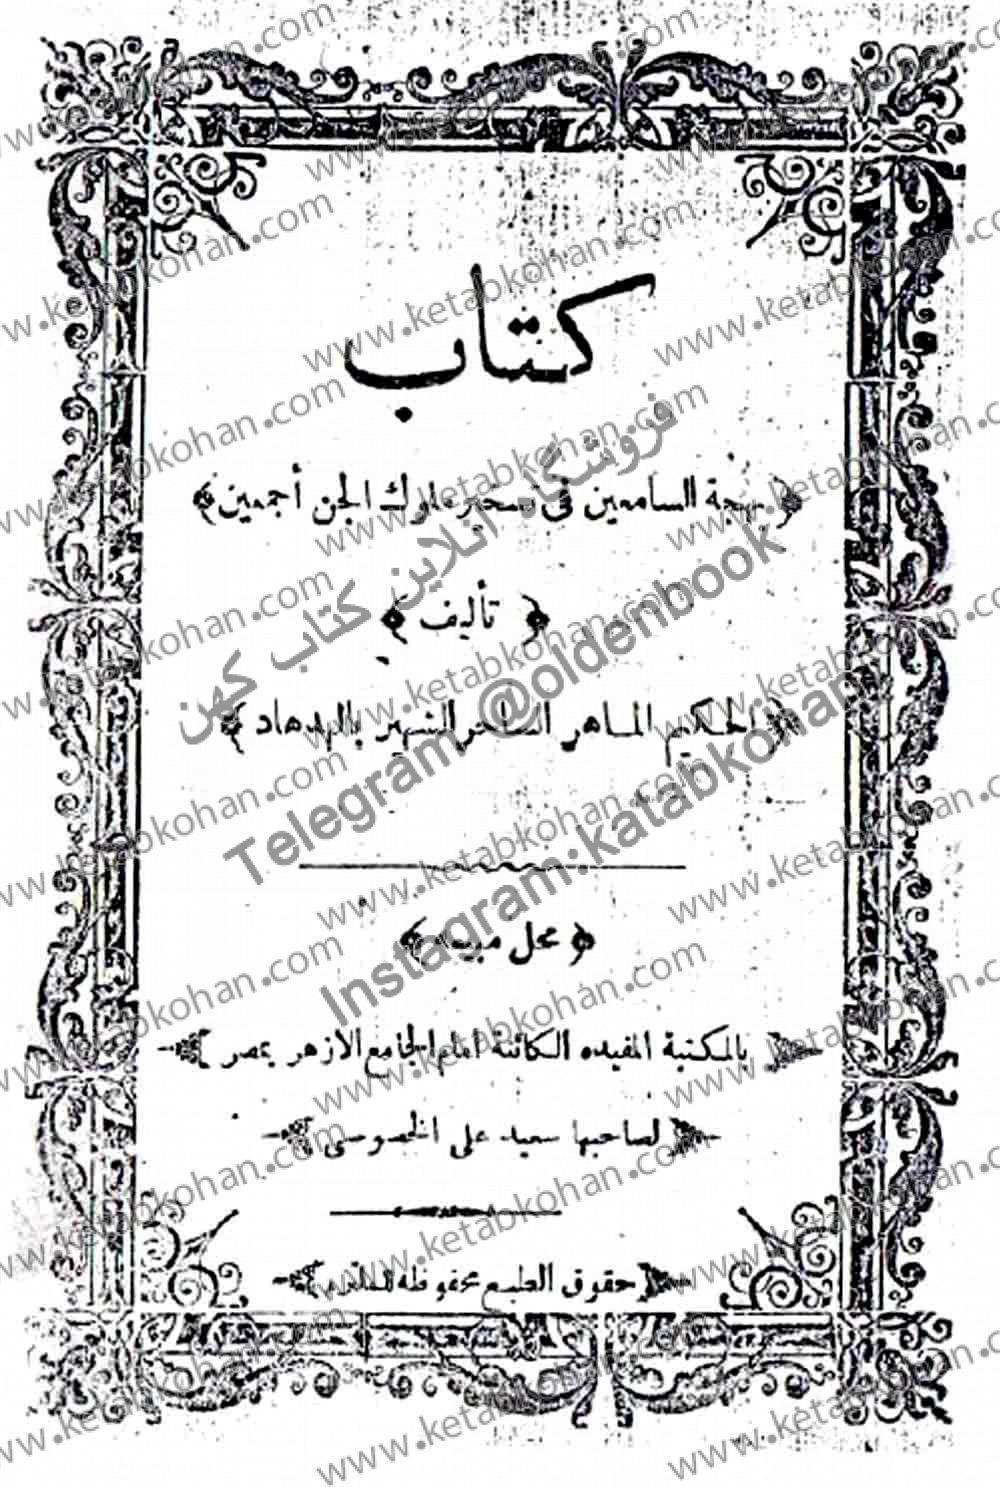 كتاب
﴿ بهجة السامعين فى تسخير ملوك الجن أجمعين ﴾
﴿ تأليف ﴾
﴿ الحكيم الماهر الساحر الشهير بالهدهاد ﴾
﴿ محل مبيعه ﴾
﴿ بالمكتبة المفيده الكائنة امام الجامع الازهر بمصر ﴾
﴿ لصاحبها سعيد على الخصوصى ﴾
﴿ حقوق الطبع محفوظة للملتزم ﴾
فروشگاه آنلاين كتاب كهن
Telegram @oldenbook
Instagram:katabkohan
www.ketabkohan.com